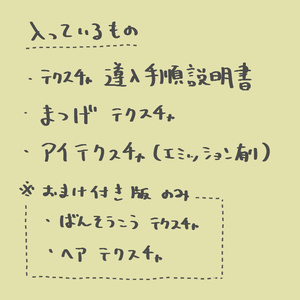 入っているもの
・テクスチャ 導入手順説明書
・まつげ テクスチャ
・アイテクスチャ(エミッション有り)
※おまけ付き版 のみ
・ばんそうこう テクスチャ
・ヘア テクスチャ